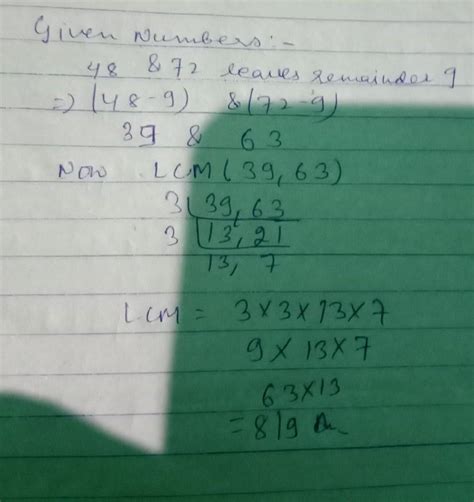 Given Numbers:-
48 & 72 leaves remainder 9
=> (48-9) & (72-9)
39 & 63
Now LCM (39, 63)
3 | 39, 63
3 | 13, 21
13, 7
LCM = 3×3×13×7
9×13×7
63×13
= 819